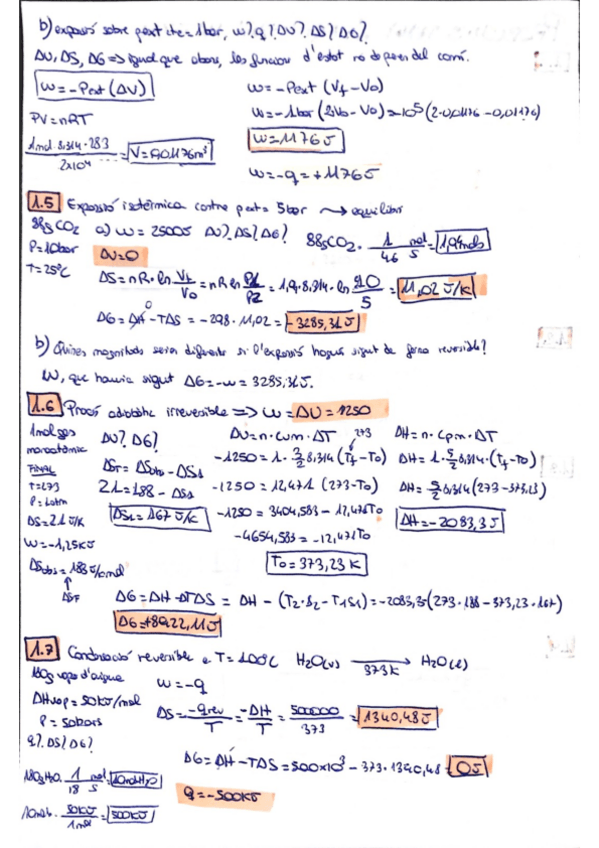 b) expansió sobre pext cte = 1bar, w? q? ΔU? ΔS? ΔG?
ΔU, ΔS, ΔG => igual que abans, les funcions d'estat no depenen del camí.
w = -Pext (ΔV)
w = -Pext (Vf - V0)
w = -1bar (2V0 - V0) = -10^5 (2·0,01176 - 0,01176)
PV = nRT
1mol · 8,314 · 283 / 2x10^4 = V = 0,01176m³
w = 1176J
w = -q = +1176J
1.5 Expansió isotèrmica contra pext = 5bar → equilibri
88g CO2 a) w = 2500J ΔU? ΔS? ΔG? 88gCO2 · 1 mol / 46 g = 1,9mols
P = 10bar
ΔU = 0
T = 25ºC
ΔS = nR · ln Vf/V0 = nR ln P1/P2 = 1,9 · 8,314 · ln 10/5 = 11,02 J/K
ΔG = ΔH - TΔS = -298 · 11,02 = -3285,31J
0
b) Quines magnituds serien diferents si l'expansió hagués sigut de forma reversible?
W, que hauria sigut ΔG = -w = 3285,31J.
1.6 Procés adiabàtic irreversible => w = ΔU = 1250
1mol gas
monoatòmic
ΔU? ΔG?
ΔU = n · cvm · ΔT
273
ΔH = n · cpm · ΔT
-1250 = 1 · 3/2 8,314 (Tf - T0)
ΔH = 1 · 5/2 8,314 · (Tf - T0)
FINAL
T = 273
P = 1atm
ΔS = 21J/K
w = -1,25kJ
21 = 188 - ΔS1
ΔS1 = 167 J/K
-1250 = 12,471 (273 - T0)
ΔH = 5/2 8,314 (273 - 373,23)
-1250 = 3404,583 - 12,471T0
ΔH = -2083,3J
-4654,583 = -12,471T0
T0 = 373,23 K
ΔSabs = 188J/Kmol
ΔG = ΔH - ΔTΔS = ΔH - (T2·S2 - T1S1) = -2083,3 - (273 · 188 - 373,23 · 167)
ΔG = +8922,11J
1.7 Condensació reversible a T = 100ºC H2O(v) → 373K H2O(l)
180g vapor d'aigua
w = -q
ΔHvap = 50kJ/mol
ΔS = -qrev / T = -ΔH / T = 500000 / 373 = 1340,48J
q? ΔS? ΔG?
ΔG = ΔH - TΔS = 500x10³ - 373 · 1340,48 = 0J
180gH2O · 1 mol / 18 g = 10molH2O
q = -500kJ
10mols · 50kJ / 1mol = 500kJ